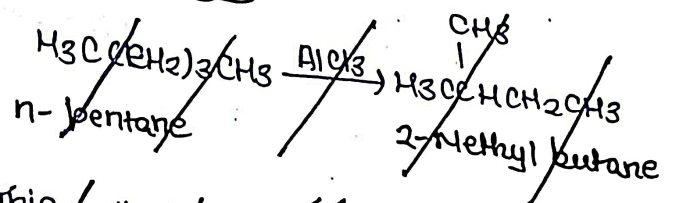 CH3
H3C(CH2)3CH3 AlCl3 H3CCHCH2CH3
n-pentane 2-Methyl butane